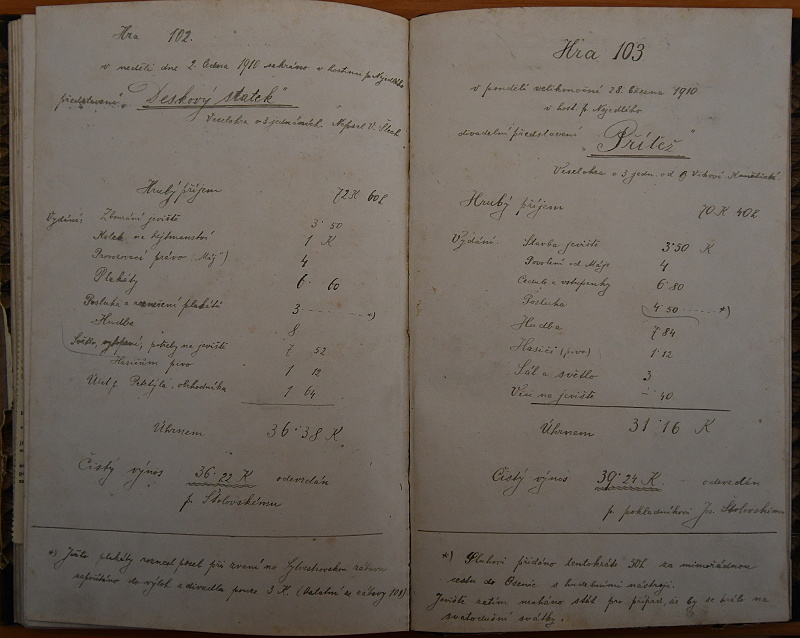 Hra 102.
v neděli dne 2. ledna 1910 sehráno v hostinci p. Nejedlého
představení „Deskový statek“
Veselohra o 3 jednáních. Napsal V. Štech
Hrubý příjem 72 K 60 h
Vydání: Zbourání jeviště 3 50
Kolek na hejtmanství 1 K
Provozovací právo („Máj“) 4
Plakáty 6 60
Posluha a roznešení plakátů 3 *)
Hudba 8
Světlo, potřeby na jeviště 7 52
Hasičům pivo 1 12
Účet p. obchodníka 1 64
Úhrnem 36·38 K
Čistý výnos 36·22 K odevzdán
p. Štolovskému
*) Ježto plakáty roznesl posel při zvaní na Sylvestrovskou zábavu
započítáno do výloh z divadla pouze 3 K. (Ostatní ze zábavy 101)
Hra 103
v pondělí velikonoční 28. března 1910
v host. p. Nejedlého
divadelní představení „Přítež“
Veselohra o 3 jedn. od Vikové Kunětické.
Hrubý příjem 70 K 40 h.
Vydání: Stavba jeviště 3·50 K
Povolení od Máje 4
Cedule a vstupenky 6·80
Posluha 4·50 *)
Hudba 7·84
Hasiči (pivo) 1·12
Sál a světlo 3
na jeviště –·40
Úhrnem 31·16 K
Čistý výnos 39·24 K. odevzdán
p. pokladníkovi Jos. Štolovskému
*) přidáno tentokráte 50 h za mimořádnou
cestu do Osenic s hudebními nástroji.
Jeviště zatím necháno stát pro případ, že by se hrálo na
svatodušní svátky.